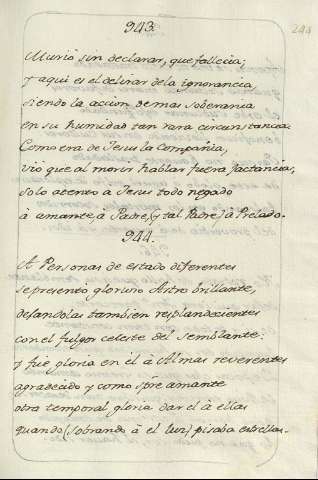 943.
244
Murio sin declarar, que fallecia;
y aqui es el delirar de la ignorancia
siendo la accion de mas soberania
en su humildad tan rara circunstancia.
Como era de Jesus la Compañia,
vió que al morir hablar fuera jactancia,
solo atento a Jesus todo negado
à amante, à Padre, (y tal Padre) à Prelado.
944.
A Personas de estado diferentes
se presentó glorioso Astro brillante,
dejandolas tambien resplandecientes
con el fulgor celeste del semblante:
y fue gloria en èl à Almas reverentes
agradecido y como spre amante
otra temporal gloria dar èl à ellas
quando (sobrando à el luz) pisaba estrellas.